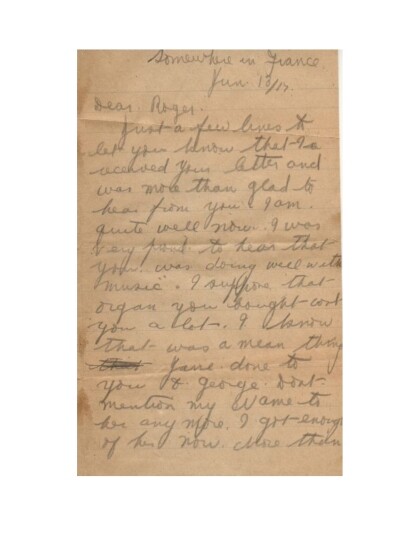 Somewhere in France
Jun. 13/17.
Dear Roger.
Just a few lines to
let you know that I
received your letter and
was more than glad to
hear from you. I am.
quite well now. I was
very fond to hear that
you. was doing well with
"music". I suppose that
organ you bought cost
you a lot. I know
that was a mean thing
Jane done to
you & george. Dont
mention my Name to
her any more. I got enough
of her now. More than